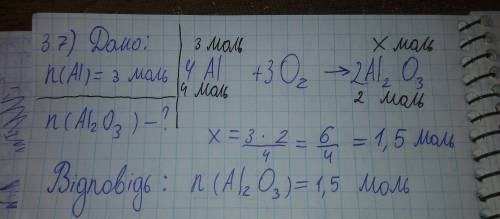 37) Дано:
n(Al) = 3 моль
n(Al₂O₃) – ?
3 моль x моль
4Al + 3O₂ → 2Al₂O₃
4 моль 2 моль
x = 3 · 2 / 4 = 6 / 4 = 1,5 моль
Відповідь: n(Al₂O₃) = 1,5 моль